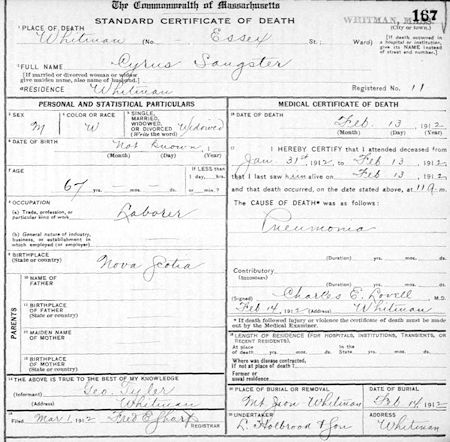 The Commonwealth of Massachusetts
STANDARD CERTIFICATE OF DEATH
WHITMAN, MASS. 167
(City or town.)
1 PLACE OF DEATH
Whitman (No. Essex St.; Ward)
[If death occurred in a hospital or institution, give its NAME instead of street and number.]
2 FULL NAME Cyrus Sangster
[If married or divorced woman or widow give maiden name, also name of husband.]
RESIDENCE Whitman Registered No. 11
PERSONAL AND STATISTICAL PARTICULARS
3 SEX M
4 COLOR OR RACE W
5 SINGLE, MARRIED, WIDOWED, OR DIVORCED (Write the word) Widowed
6 DATE OF BIRTH
Not Known
(Month) (Day) (Year)
7 AGE
67 yrs. mos. ds.
If LESS than 1 day, hrs. or min.?
8 OCCUPATION
(a) Trade, profession, or particular kind of work Laborer
(b) General nature of industry, business, or establishment in which employed (or employer)
9 BIRTHPLACE
(State or country) Nova Scotia
PARENTS
10 NAME OF FATHER
11 BIRTHPLACE OF FATHER
(State or country)
12 MAIDEN NAME OF MOTHER
13 BIRTHPLACE OF MOTHER
(State or country)
14 THE ABOVE IS TRUE TO THE BEST OF MY KNOWLEDGE
(Informant) Geo. Tyler
(Address) Whitman
15 Filed Mar 1, 1912
REGISTRAR
MEDICAL CERTIFICATE OF DEATH
16 DATE OF DEATH
Feb. 13, 1912
(Month) (Day) (Year)
17 I HEREBY CERTIFY that I attended deceased from
Jan. 31st, 1912, to Feb 13, 1912,
that I last saw him alive on Feb 13, 1912,
and that death occurred, on the date stated above, at 11 a m.
The CAUSE OF DEATH* was as follows:
Pneumonia
(Duration) yrs. mos. ds.
Contributory
(SECONDARY)
(Duration) yrs. mos. ds.
(Signed) Charles E. Lovell M.D.
Feb 14, 1912 (Address) Whitman
* If death followed injury or violence the certificate of death must be made out by the Medical Examiner.
18 LENGTH OF RESIDENCE (FOR HOSPITALS, INSTITUTIONS, TRANSIENTS, OR RECENT RESIDENTS).
At place of death yrs. mos. ds. In the State yrs. mos. ds.
Where was disease contracted, if not at place of death?
Former or usual residence
19 PLACE OF BURIAL OR REMOVAL
Mt Zion Whitman
DATE OF BURIAL
Feb 14, 1912
20 UNDERTAKER
L. Holbrook & Son
ADDRESS
Whitman